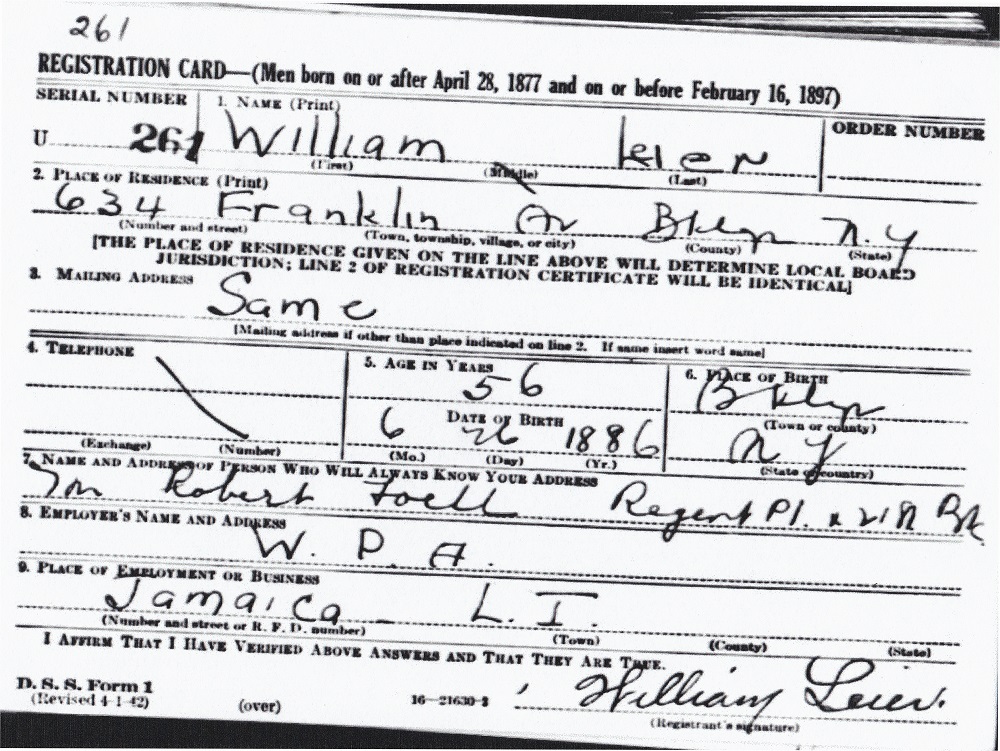 261
REGISTRATION CARD—(Men born on or after April 28, 1877 and on or before February 16, 1897)
SERIAL NUMBER 1. NAME (Print) ORDER NUMBER
U 261 William Leier
(First) (Middle) (Last)
2. PLACE OF RESIDENCE (Print)
634 Franklin Av Bklyn N.Y
(Number and street) (Town, township, village, or city) (County) (State)
[THE PLACE OF RESIDENCE GIVEN ON THE LINE ABOVE WILL DETERMINE LOCAL BOARD
JURISDICTION; LINE 2 OF REGISTRATION CERTIFICATE WILL BE IDENTICAL]
3. MAILING ADDRESS
Same
[Mailing address if other than place indicated on line 2. If same insert word same]
4. TELEPHONE 5. AGE IN YEARS 6. PLACE OF BIRTH
56 Bklyn
DATE OF BIRTH (Town or county)
6 26 1886 N Y
(Exchange) (Number) (Mo.) (Day) (Yr.) (State or country)
7. NAME AND ADDRESS OF PERSON WHO WILL ALWAYS KNOW YOUR ADDRESS
Robert Foell Regent Pl. & 21
8. EMPLOYER'S NAME AND ADDRESS
W. P. A.
9. PLACE OF EMPLOYMENT OR BUSINESS
Jamaica L. I.
(Number and street or R. F. D. number) (Town) (County) (State)
I AFFIRM THAT I HAVE VERIFIED ABOVE ANSWERS AND THAT THEY ARE TRUE.
D. S. S. Form 1
(Revised 4-1-42) (over) 16—21630-2 William Leier.
(Registrant's signature)